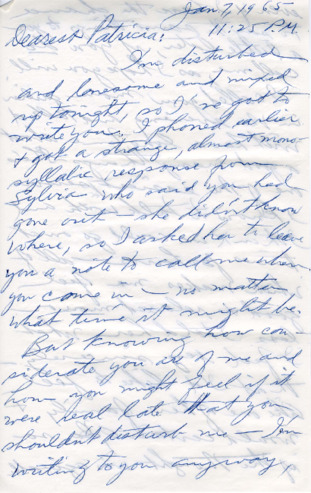 Jan 7, 1965
11:25 P.M.
Dearest Patricia:
I'm disturbed
and lonesome and mixed
up tonight, so I've got to
write you. I phoned earlier
& got a strange, almost mono
syllabic response from
Sylvia who said you had
gone out — she didn't know
where, so I asked her to leave
you a note to call me when
you come in — no matter
what time it might be.
But knowing how con-
siderate you are of me and
how you might feel if it
were real late that you
shouldn't disturb me — I'm
writing to you anyway,